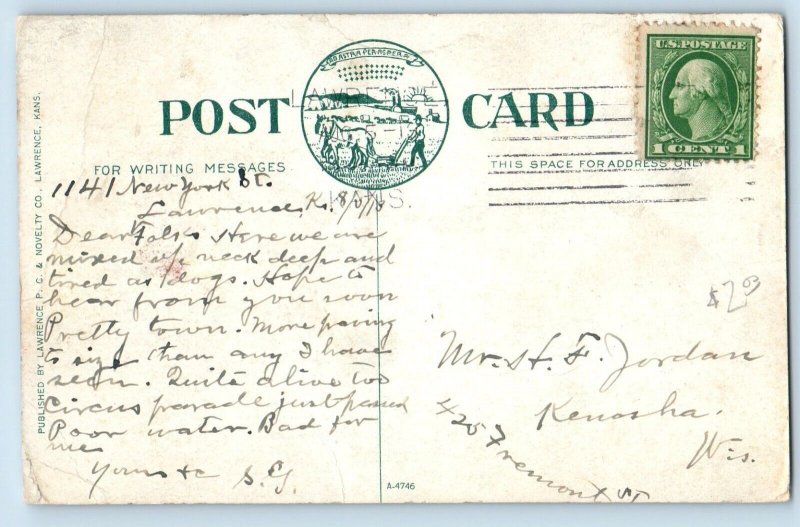 AD ASTRA PER ASPERA
U.S. POSTAGE
1 CENT 1
POST CARD
LAWRENCE
KANS.
FOR WRITING MESSAGES
THIS SPACE FOR ADDRESS ONLY
PUBLISHED BY LAWRENCE P. C. & NOVELTY CO., LAWRENCE, KANS.
1141 New York St.
Lawrence, Ks.
Dear Folks Here we are
mixed up neck deep and
tired as dogs. Hope to
hear from you soon
Pretty town. More paving
to size than any I have
seen. Quite alive too
circus parade just passed
Poor water. Bad for
me
Yours &c S.
$2.03
Mr. H. F. Jordan
Kenosha.
Wis.
Fremont St
A-4746